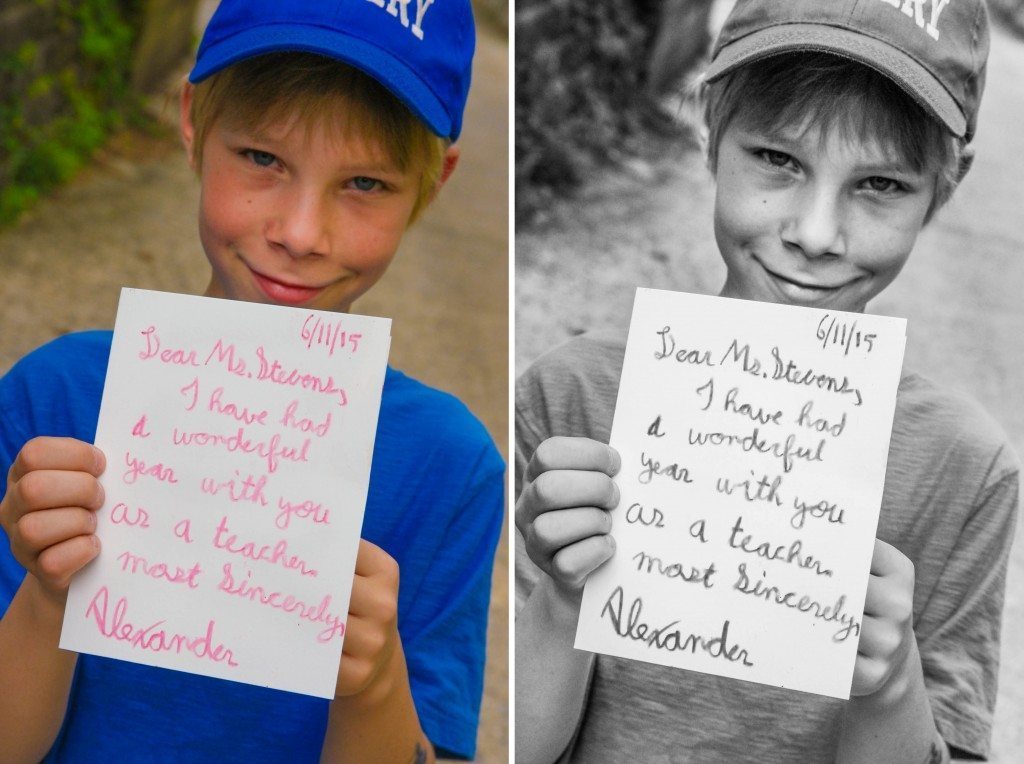 ERY
6/11/15
Dear Ms. Stevens,
I have had
a wonderful
year with you
as a teacher.
most Sincerely,
Alexander
ERY
6/11/15
Dear Ms. Stevens,
I have had
a wonderful
year with you
as a teacher.
most Sincerely,
Alexander